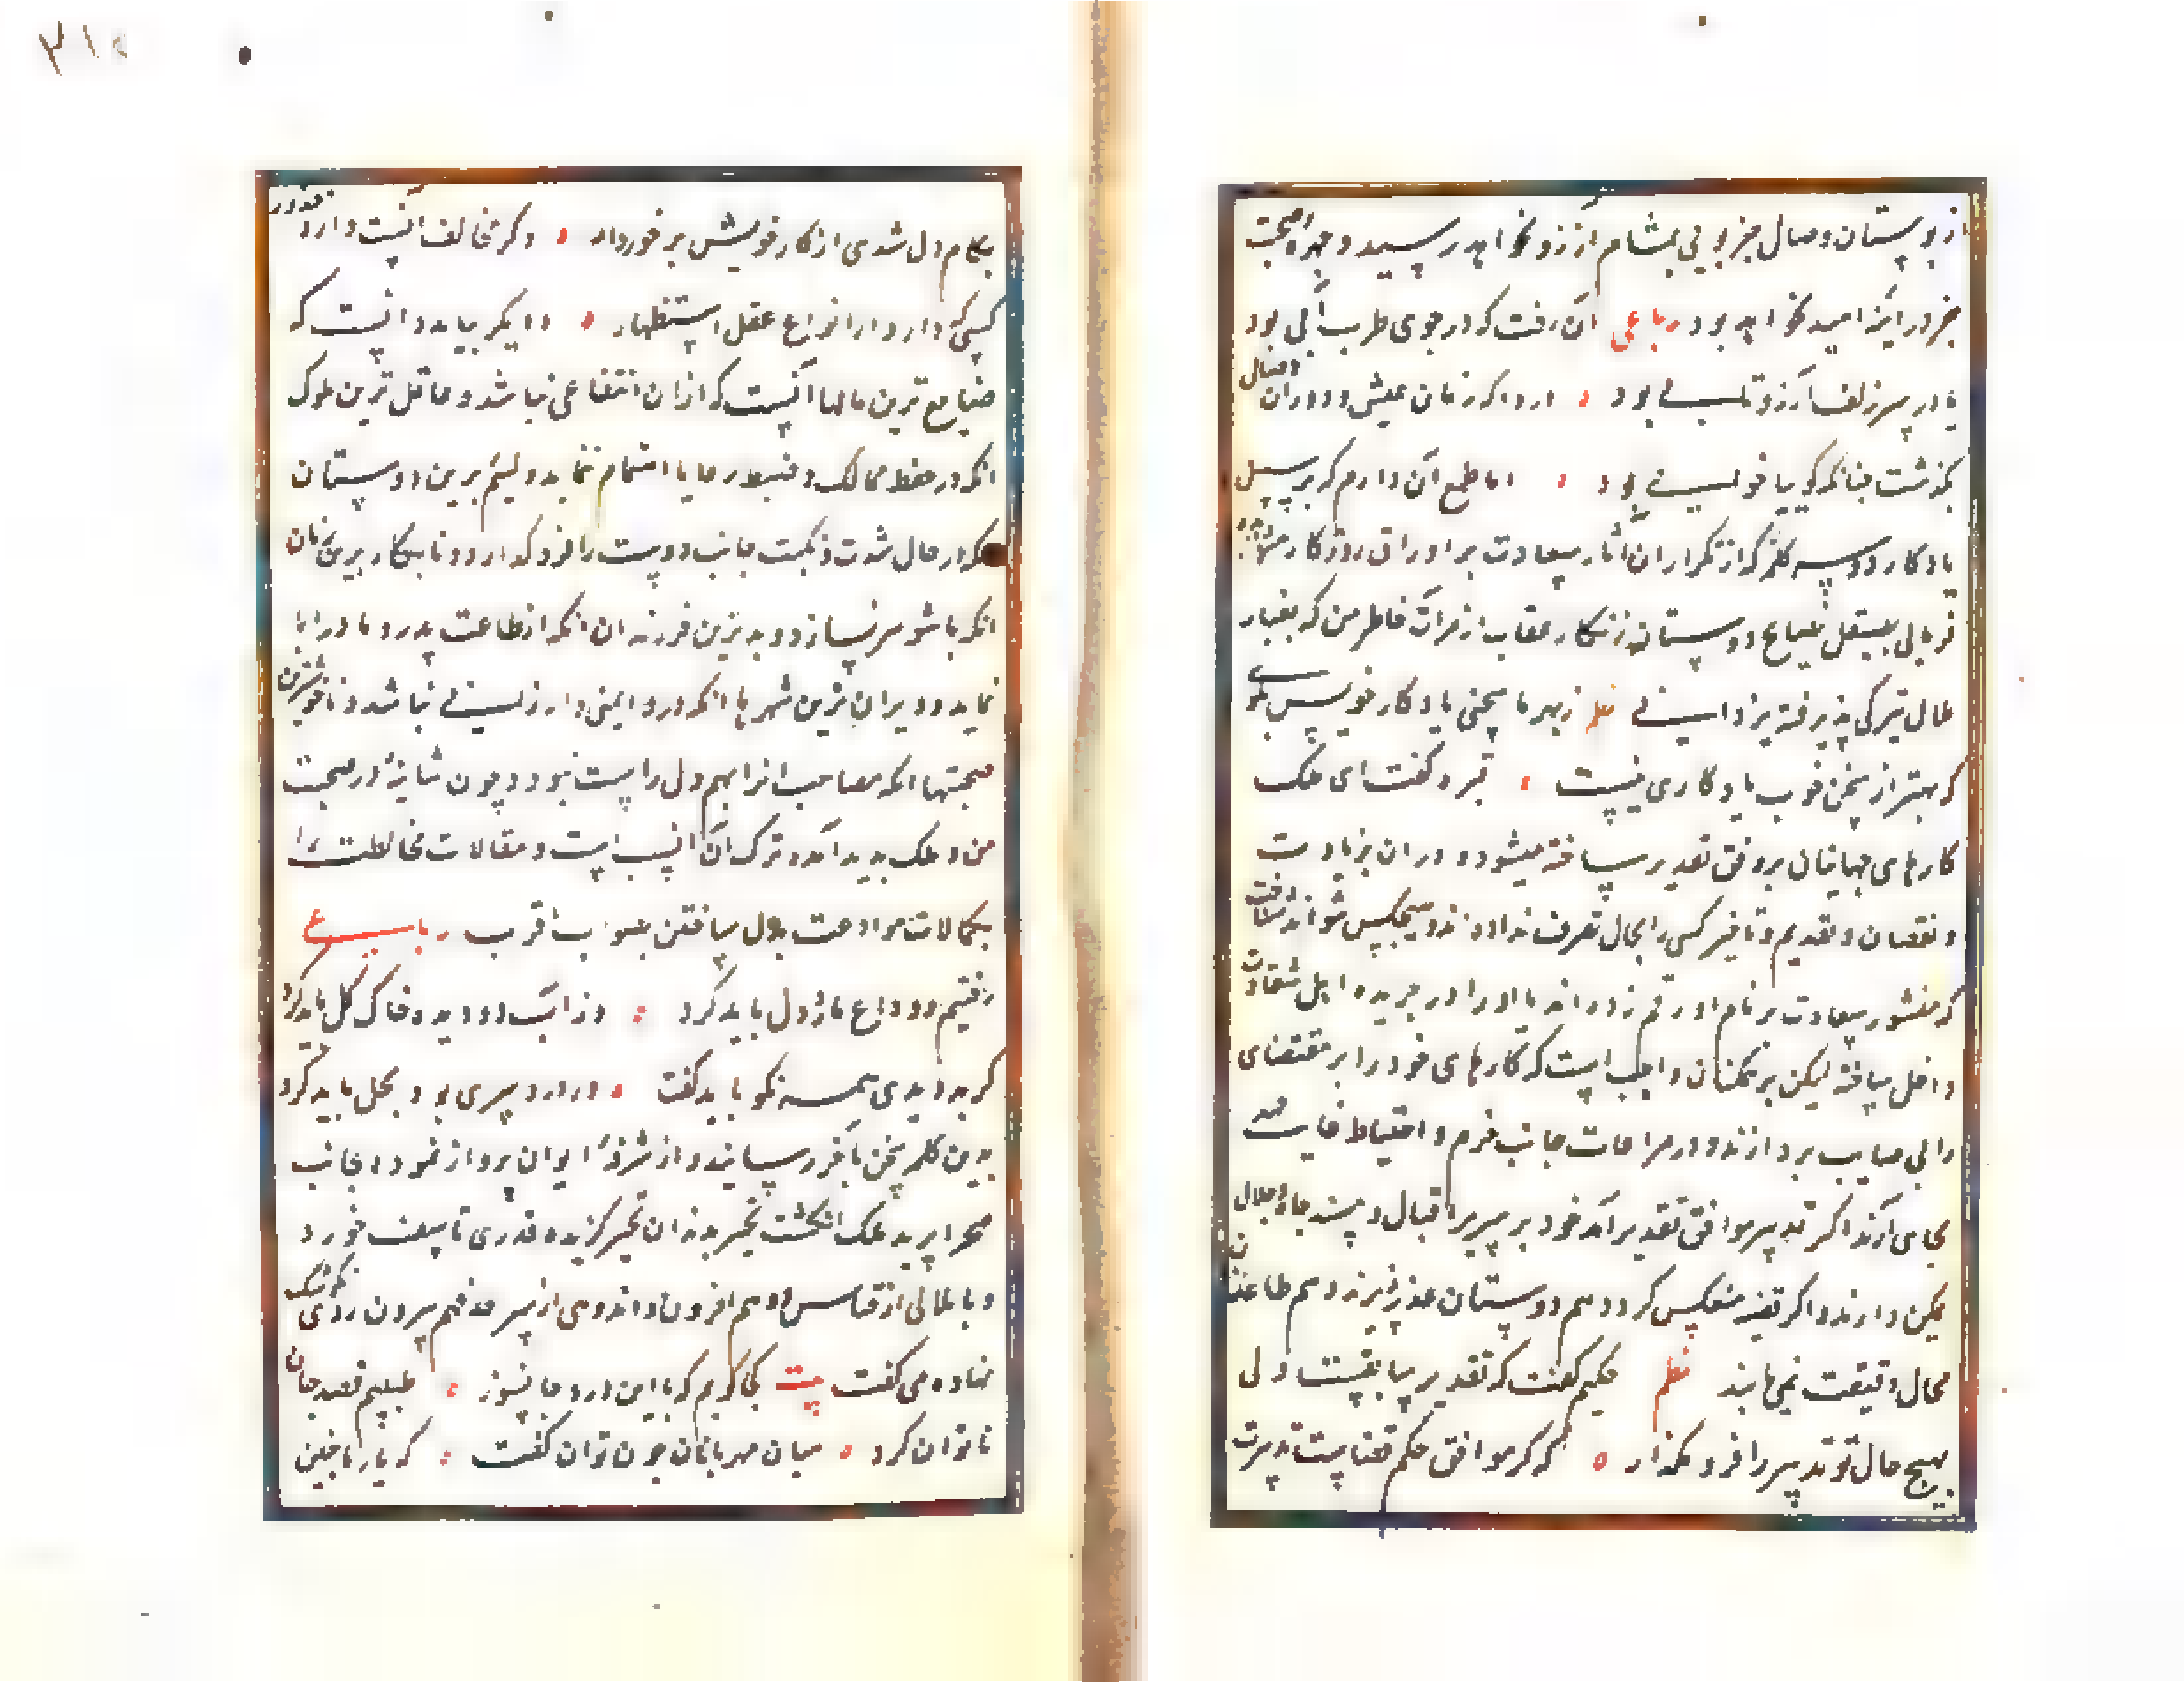 از بوستان وصال جز بویی بمشام آرزو نخواهد رسید و چهره صحبت
جز در آینه امید نخواهد بود رباعی آن رفت که در جوی طرب آبی بود
یا در سر زلف آرزو تابی بود دردا که زمان عیش و دوران وصال
بگذشت چنانکه گوییا خوابی بود اما طمع آن دارم که بر سبیل
یادکار دو سه کلمه که از تکرار آن آثار سعادت بر اوراق روزکار
فرمایی بصیقل نصایح دوستان زنکار عقاب از مرآت خاطر من که بغبار
ملال تیرکی پذیرفته بزدایی نظم زبهر ما سخنی یادکار خویش بکوی
که بهتر از سخن خوب یادکاری نیست قبره کفت ای ملک
کارهای جهانیان بر وفق تقدیر ساخته میشود و در آن بزیادت
و نقصان و تقدیم و تاخیر کسی را مجال تصرف نداده‌اند و هیچکس نتواند شناخت
که منشور سعادت بر نام او رقم زده‌اند یا او را در جریده اهل شقاوت
داخل ساخته لیکن بر همکنان واجب است که کارهای خود را بر مقتضای
رای صایب بردازند و در مراعات جانب حزم و احتیاط غایت جهد
بجای آرند اکر تدبیر موافق تقدیر آمد خود بر سریر اقبال و مسند جاه و جلال
ممکن دارند و اکر قضیه منعکس کردد هم دوستان عذر پذیرند و هم طاعنان
مجال وقیعت نمی‌یابند نظم حکیم کفت که تقدیر سابقست ولی
بهیچ حال تو تدبیر را فرو مکذار که کر موافق حکم قضاست تدبیرت
بکام دل شدی از کار خویش برخوردار وکر مخالف آنست داردت معذور
کسی که دارد از انواع عقل استظهار دیکر بباید دانست که
ضایع ترین مالها آنست که ازان انتفاعی نباشد و غافل ترین ملوک
آنکه در حفظ ممالک و ضبط رعایا اهتمام ننماید و لئیم‌ترین دوستان
آنکه در حال شدت و نکبت جانب دوست را فرو کذارد و نابکارترین زنان
آنکه با شوهر نسازد و بدترین فرزندان آنکه از طاعت پدر و مادر ابا
نماید و ویران ترین شهرها آنکه درو ایمنی و ارزانی نباشد و ناخوشترین
صحبتها آنکه مصاحب انرا بهم دل راست نبود و چون شایبه در صحبت
من و ملک پدید آمد و ترک آن انسب است و مقالات مخالطت را
بکالات موادعت بدل ساختن بصواب اقرب رباعی
رفتیم و وداع ما ز دل باید کرد وز آب دو دیده خاک کل باید کرد
کر بد دیدی همه نکو باید کفت ور درد سری بود بحل باید کرد
بدین کلمه سخن بآخر رسانید و از شرفهٔ ایوان پرواز نموده جانب
صحرا پرید ملک انکشت تحیر بدندان تحسر کزیده قدری تاسف خورد
و با ملالی از قیاس و وهم افزون و اندوهی از سر حد فهم بیرون روی
نهاده می کفت بیت کجا کویم که با این درد جانسوز طبیبم قصد جان
ناتوان کرد میان مهربانان چون توان کفت که یار ما چنین